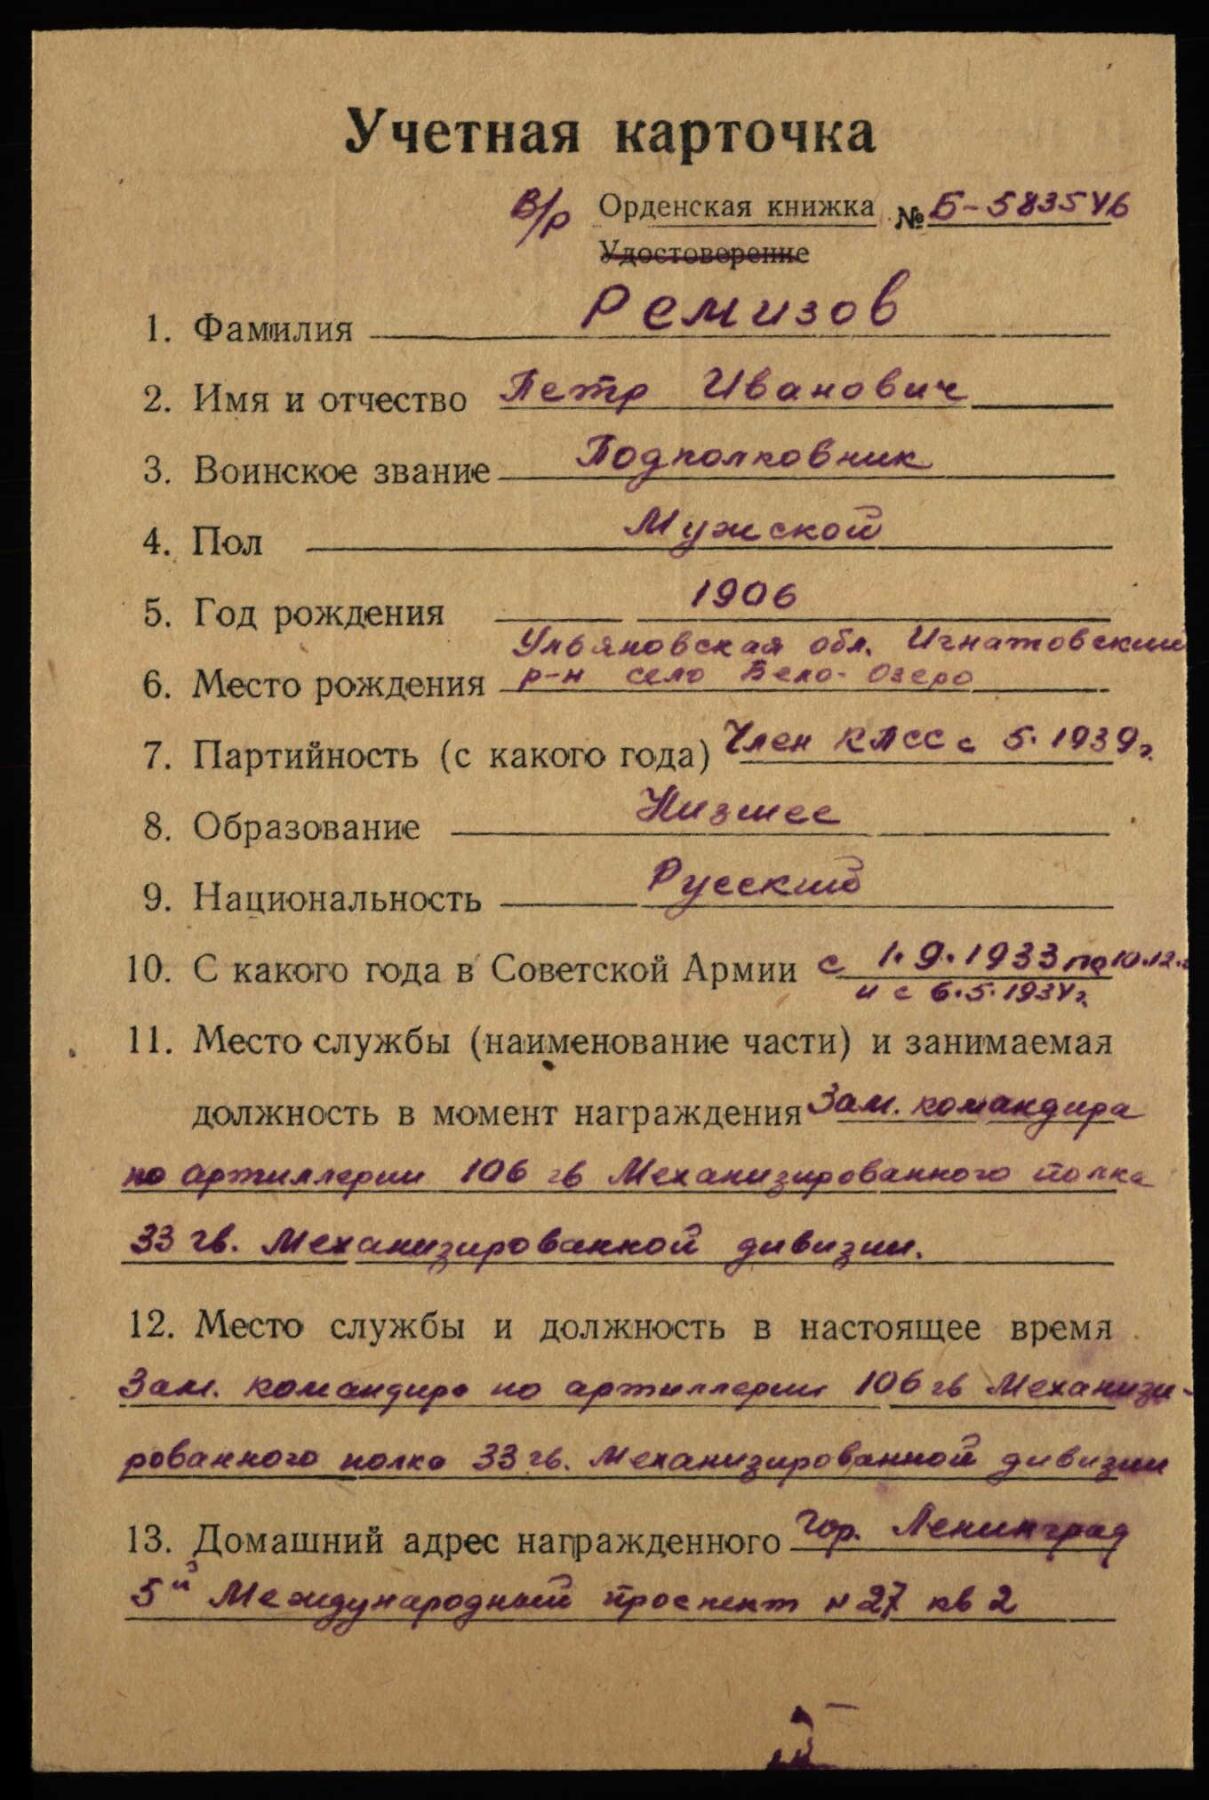 Учетная карточка
в/р Орденская книжка № Б-583546
Удостоверение
1. Фамилия Ремизов
2. Имя и отчество Петр Иванович
3. Воинское звание Подполковник
4. Пол Мужской
5. Год рождения 1906
Ульяновская обл. Игнатовский
6. Место рождения р-н село Бело-Озеро
7. Партийность (с какого года) Член КПСС с 5.1939г.
8. Образование Низшее
9. Национальность Русский
10. С какого года в Советской Армии с 1.9.1933 по 10.12.
и с 6.5.1934г.
11. Место службы (наименование части) и занимаемая
должность в момент награждения Зам. командира
по артиллерии 106 гв Механизированного полка
33 гв. Механизированной дивизии.
12. Место службы и должность в настоящее время
Зам. командира по артиллерии 106 гв Механизи-
рованного полка 33 гв. Механизированной дивизии
13. Домашний адрес награжденного гор. Ленинград
5й Международный проспект н 27 кв 2